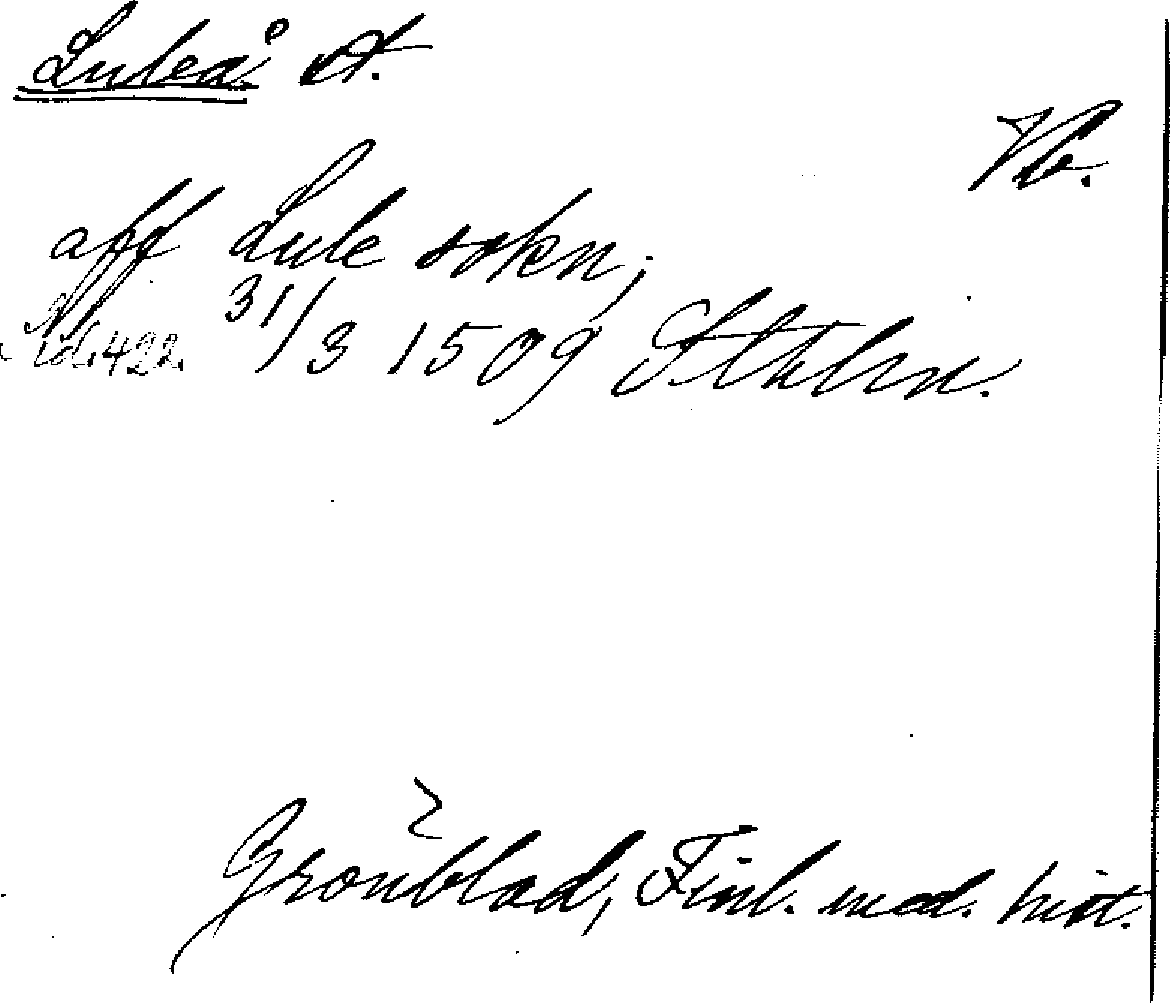 Luleå st.
Vb.
aff Lule sokn;
Nd. 422. 31/3 1509 Sthlm.
Grönblad, Finl. med. hist.